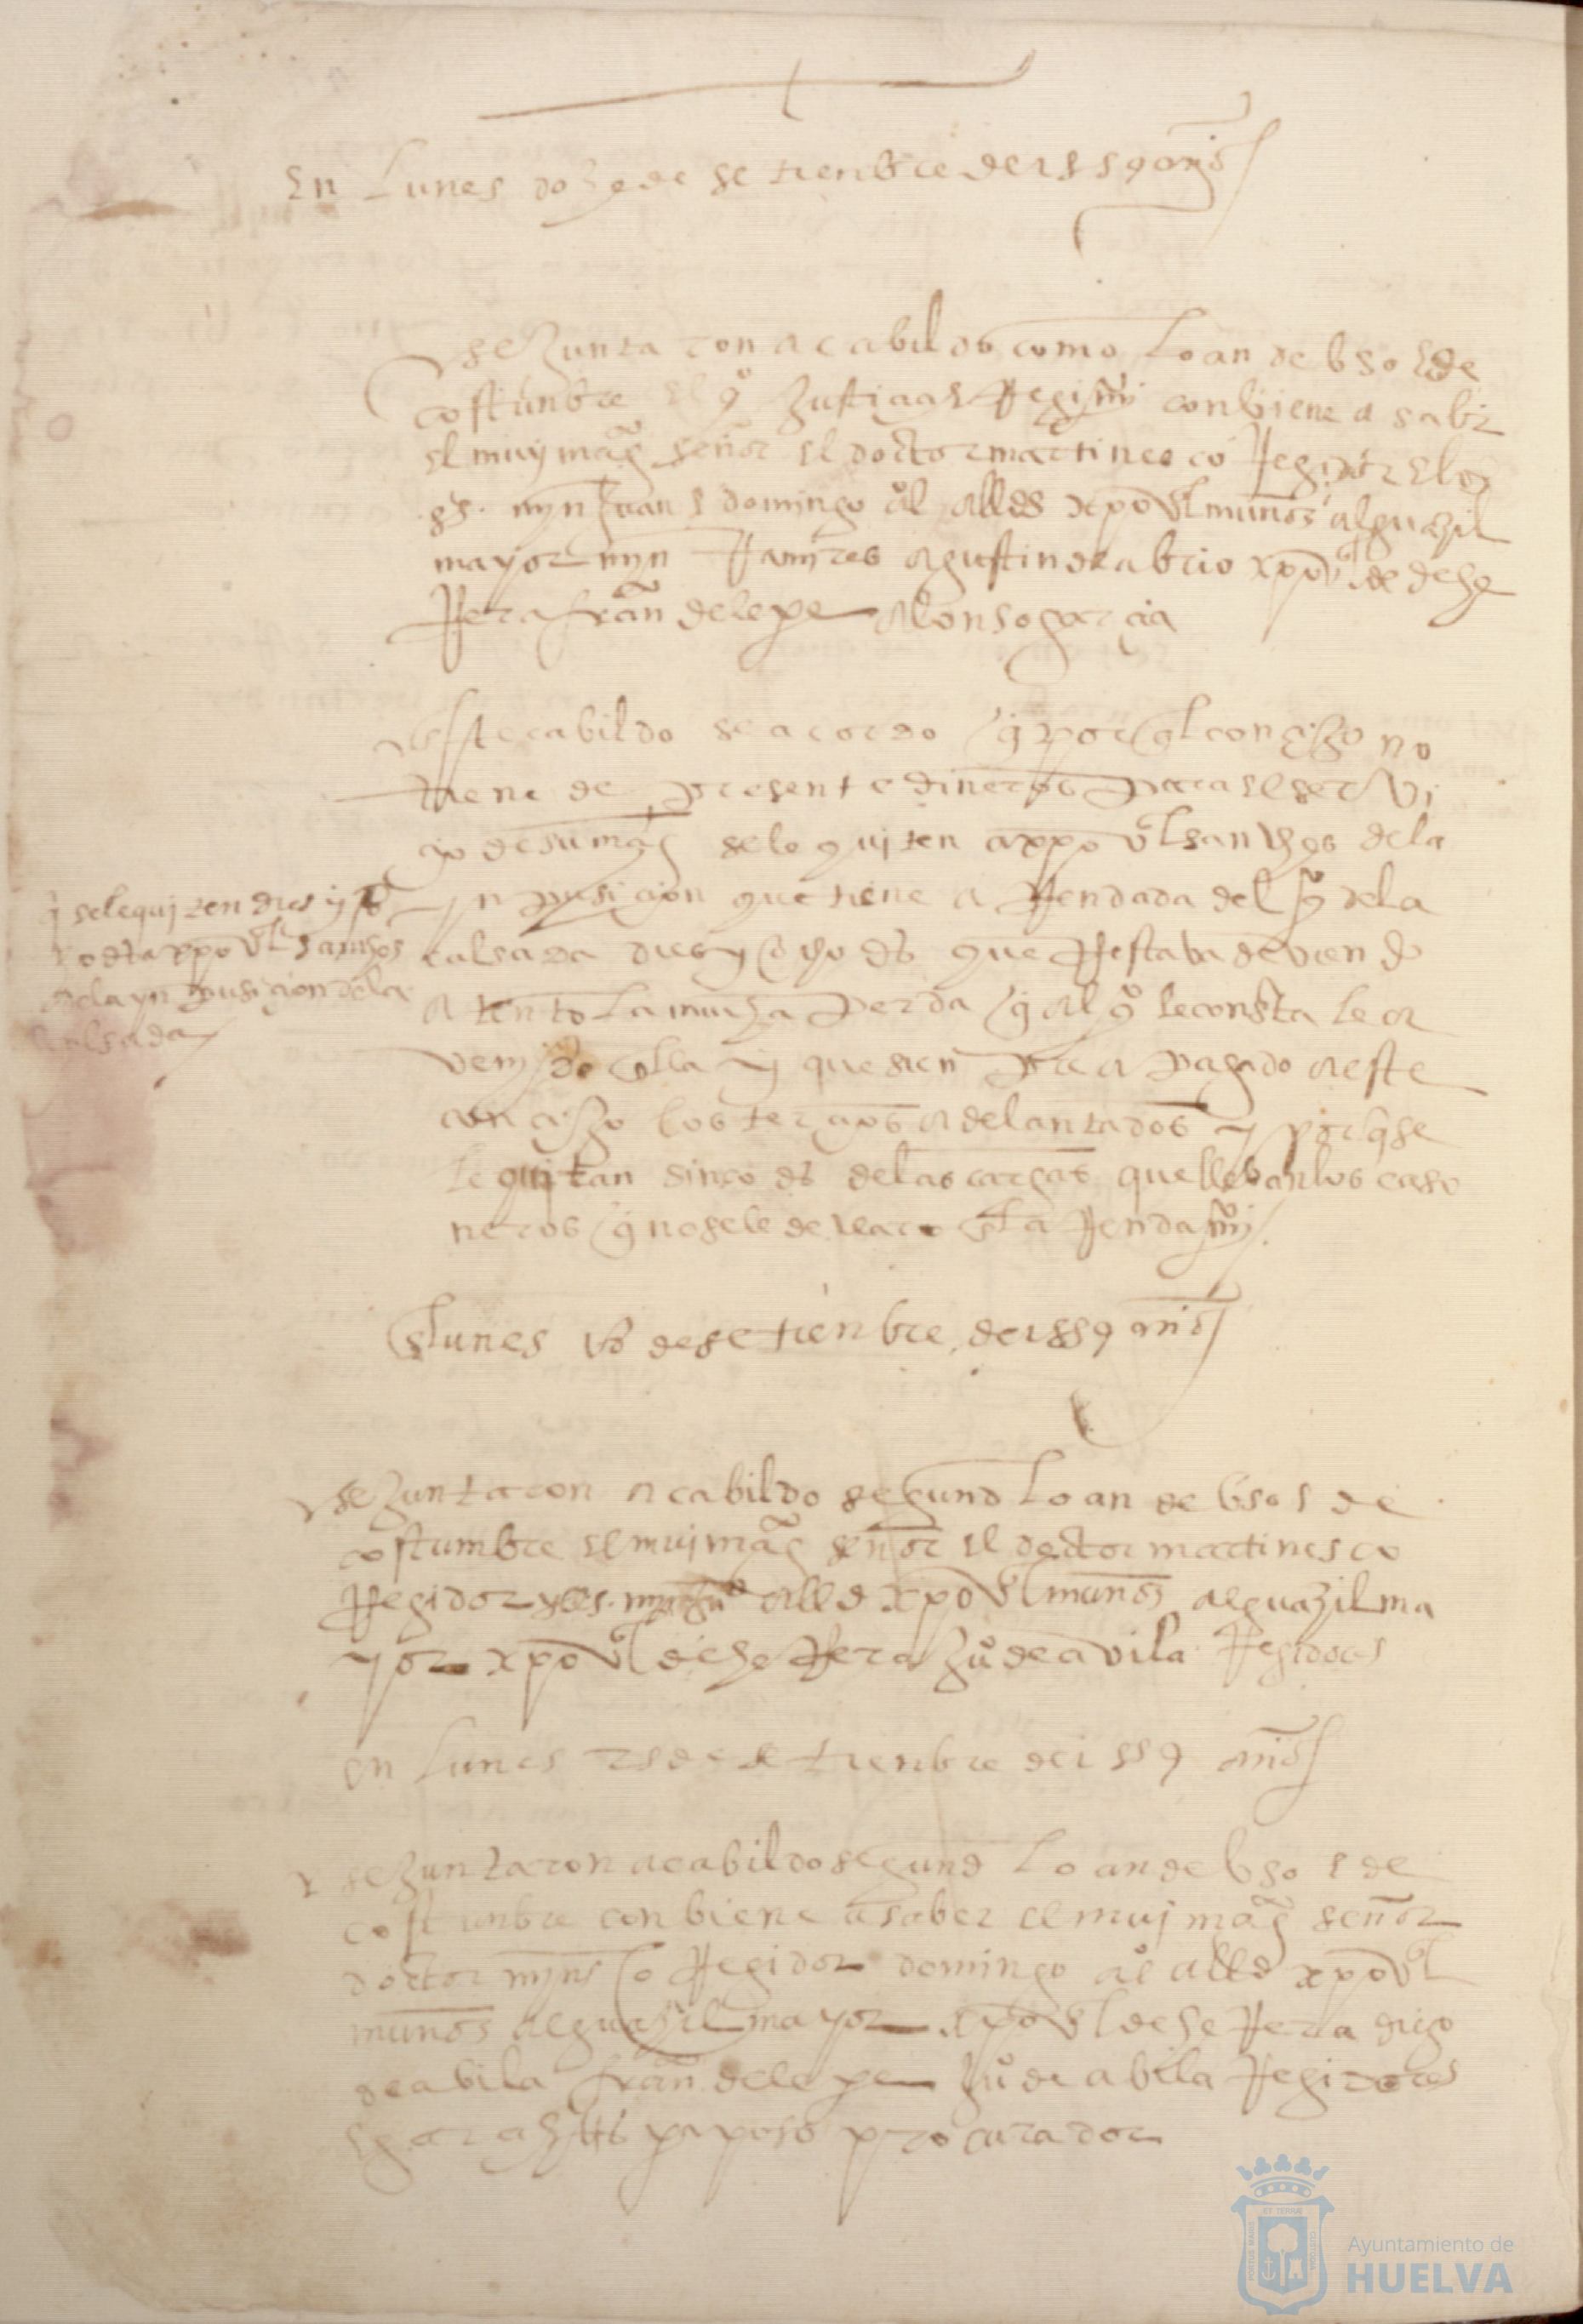 En lunes doze de setienbre de 1559 anõs
se Juntaron a cabildo como lo an de uso e de
costunbre el qº Justiçia e Regimiº conbiene a saber
el muy magº señor el doctor martines coRegidor e los
ss. myn Juan e domingo aº alldes xpoval muños alguazil
mayor myn Ramires agustin de abrio xpoval de deheRera
fran de lepe alonso garçia
este cabildo se acordo q por quel conçejo no
tiene de presente dineros para el serui
çio de su magd se lo quiten a xpoval sanches de la
ynpusiçion que tiene aRendada del sº de la
calsada dies y ocho ds que Restava deviendo
atento la mucha perda q al qº le consta le a
venido en ella y que sienpre a pagado a este
conçejo los terçios adelantados y porq se
le quitan sinco ds de las cargas que lleban los caso
neros q no se le declaro en el aRendamiº
q se le quiten dies y ocho
ds a xpoval sanches
de la ynpusiçion de la
calsada
En lunes 18 de setienbre de 1559 anõs
se Juntaron a cabildo segund lo an de uso e de
costumbre el muy magº señor el doctor martines co
Regidor y los s. myn Juº alld xpoval muños alguazil ma
yor xpoval de heRera Juº de avila Regidores
en lunes 25 de setienbre de 1559 anõs
se Juntaron a cabildo segund lo an de uso e de
costunbre conbiene a saber el muy magº señor
doctor myns coRegidor domingo aº alld xpoval
muños alguazil mayor xpoval de heRera diego
de abila fran de lepe Juº de abila Regidores
e garçi paposo procurador
Ayuntamiento de
HUELVA